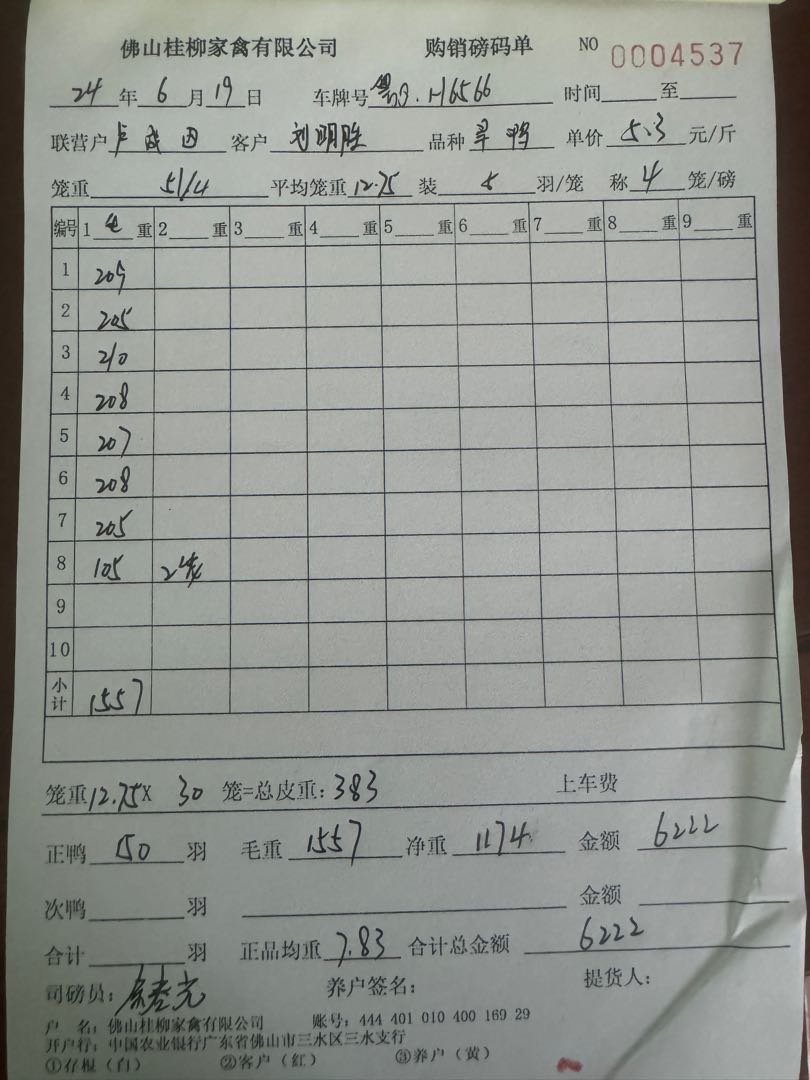 佛山桂柳家禽有限公司 购销磅码单 NO 0004537
24 年 6 月 19 日 车牌号 H6566 时间 至
联营户 客户 刘明胜 品种 单价 5.3 元/斤
笼重 51/4 平均笼重 12.75 装 5 羽/笼 称 4 笼/磅
编号 1 毛 重 2 重 3 重 4 重 5 重 6 重 7 重 8 重 9 重
1 209
2 205
3 210
4 208
5 207
6 208
7 205
8 105 2
9
10
小计 1557
笼重 12.75X 30 笼=总皮重: 383 上车费
正鸭 150 羽 毛重 1557 净重 1174 金额 6222
次鸭 羽 金额
合计 羽 正品均重 7.83 合计总金额 6222
司磅员: 养户签名: 提货人:
户 名: 佛山桂柳家禽有限公司 账号: 444 401 010 400 169 29
开户行: 中国农业银行广东省佛山市三水区三水支行
①存根(白) ②客户(红) ③养户(黄)